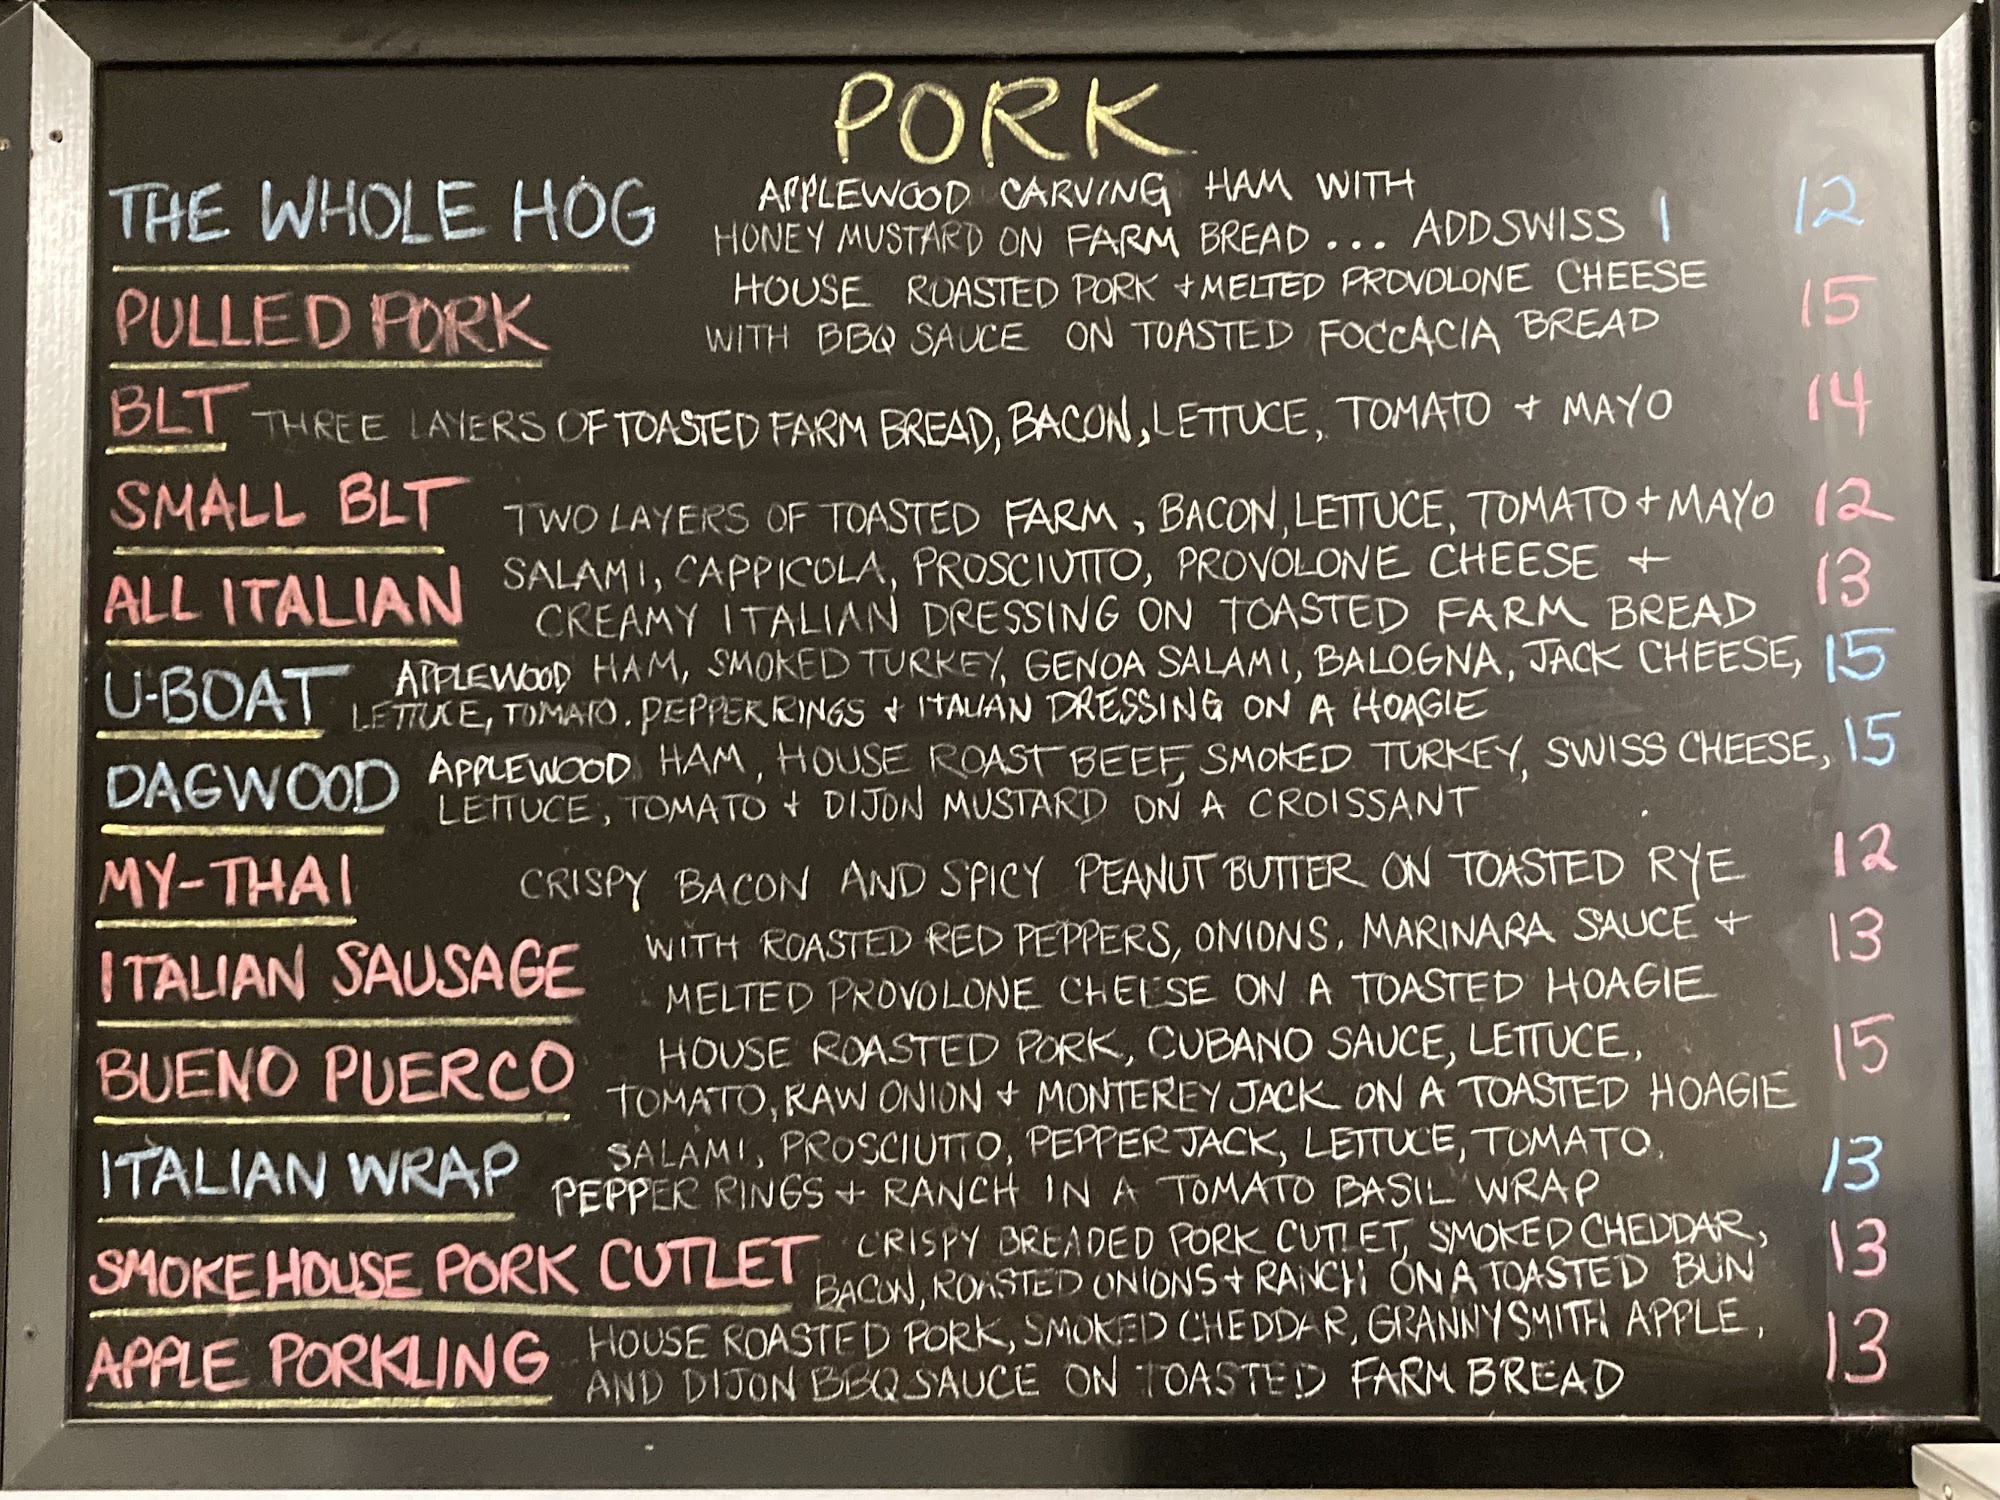 PORK
THE WHOLE HOG APPLEWOOD CARVING HAM WITH 12
HONEY MUSTARD ON FARM BREAD... ADD SWISS 1
PULLED PORK HOUSE ROASTED PORK + MELTED PROVOLONE CHEESE 15
WITH BBQ SAUCE ON TOASTED FOCCACIA BREAD
BLT THREE LAYERS OF TOASTED FARM BREAD, BACON, LETTUCE, TOMATO + MAYO 14
SMALL BLT TWO LAYERS OF TOASTED FARM, BACON, LETTUCE, TOMATO + MAYO 12
ALL ITALIAN SALAMI, CAPPICOLA, PROSCIUTTO, PROVOLONE CHEESE + 13
CREAMY ITALIAN DRESSING ON TOASTED FARM BREAD
U-BOAT APPLEWOOD HAM, SMOKED TURKEY, GENOA SALAMI, BALOGNA, JACK CHEESE, 15
LETTUCE, TOMATO, PEPPER RINGS + ITALIAN DRESSING ON A HOAGIE
DAGWOOD APPLEWOOD HAM, HOUSE ROAST BEEF, SMOKED TURKEY, SWISS CHEESE, 15
LETTUCE, TOMATO + DIJON MUSTARD ON A CROISSANT
MY-THAI CRISPY BACON AND SPICY PEANUT BUTTER ON TOASTED RYE 12
ITALIAN SAUSAGE WITH ROASTED RED PEPPERS, ONIONS, MARINARA SAUCE + 13
MELTED PROVOLONE CHEESE ON A TOASTED HOAGIE
BUENO PUERCO HOUSE ROASTED PORK, CUBANO SAUCE, LETTUCE, 15
TOMATO, RAW ONION + MONTEREY JACK ON A TOASTED HOAGIE
ITALIAN WRAP SALAMI, PROSCIUTTO, PEPPER JACK, LETTUCE, TOMATO, 13
PEPPER RINGS + RANCH IN A TOMATO BASIL WRAP
SMOKEHOUSE PORK CUTLET CRISPY BREADED PORK CUTLET, SMOKED CHEDDAR, 13
BACON, ROASTED ONIONS + RANCH ON A TOASTED BUN
APPLE PORKLING HOUSE ROASTED PORK, SMOKED CHEDDAR, GRANNY SMITH APPLE, 13
AND DIJON BBQ SAUCE ON TOASTED FARM BREAD